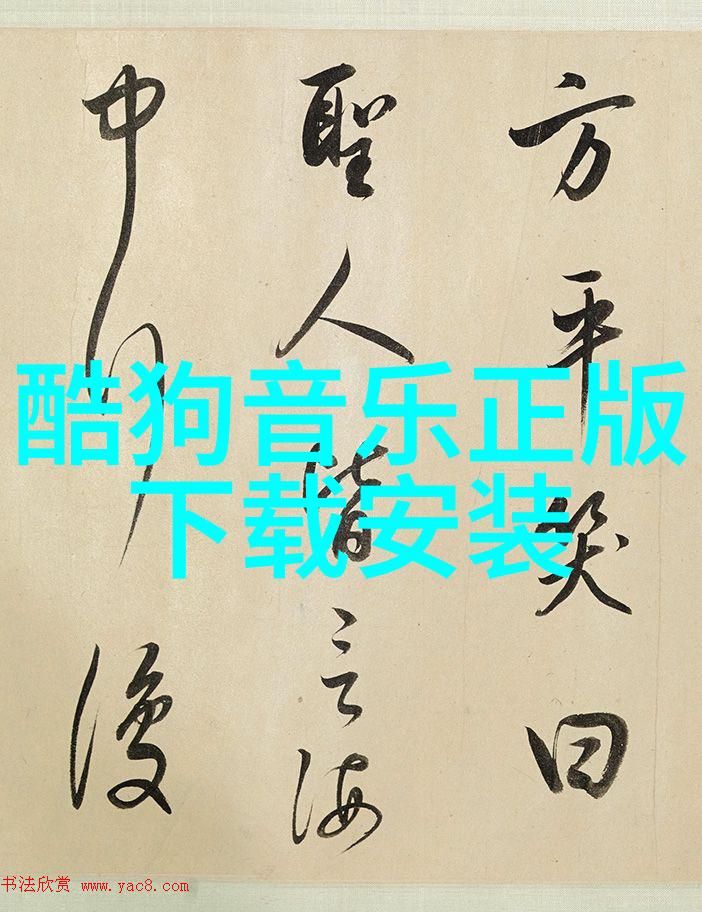 方平笑曰
聖人皆言海
中行復
酷狗音乐正版
下载安装
书法欣赏 www.yac8.com